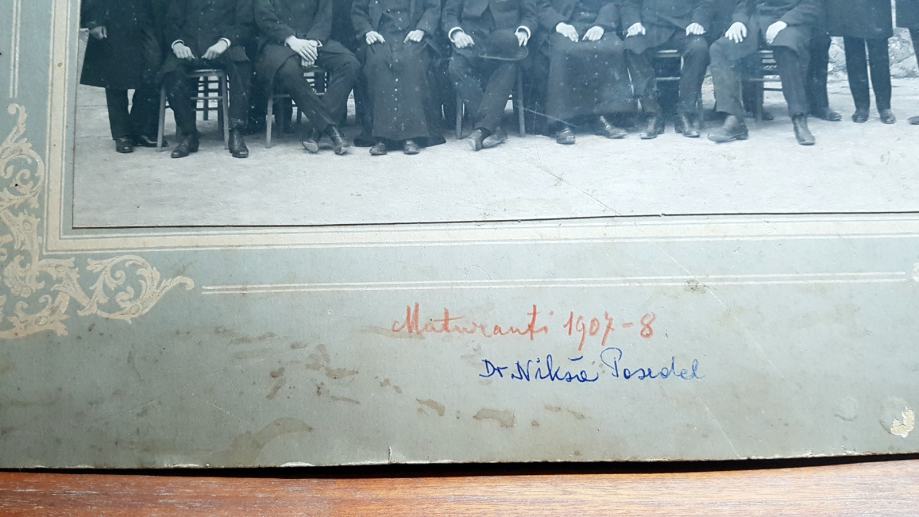 Maturanti 1907-8.
Dr. Nikša Posedel